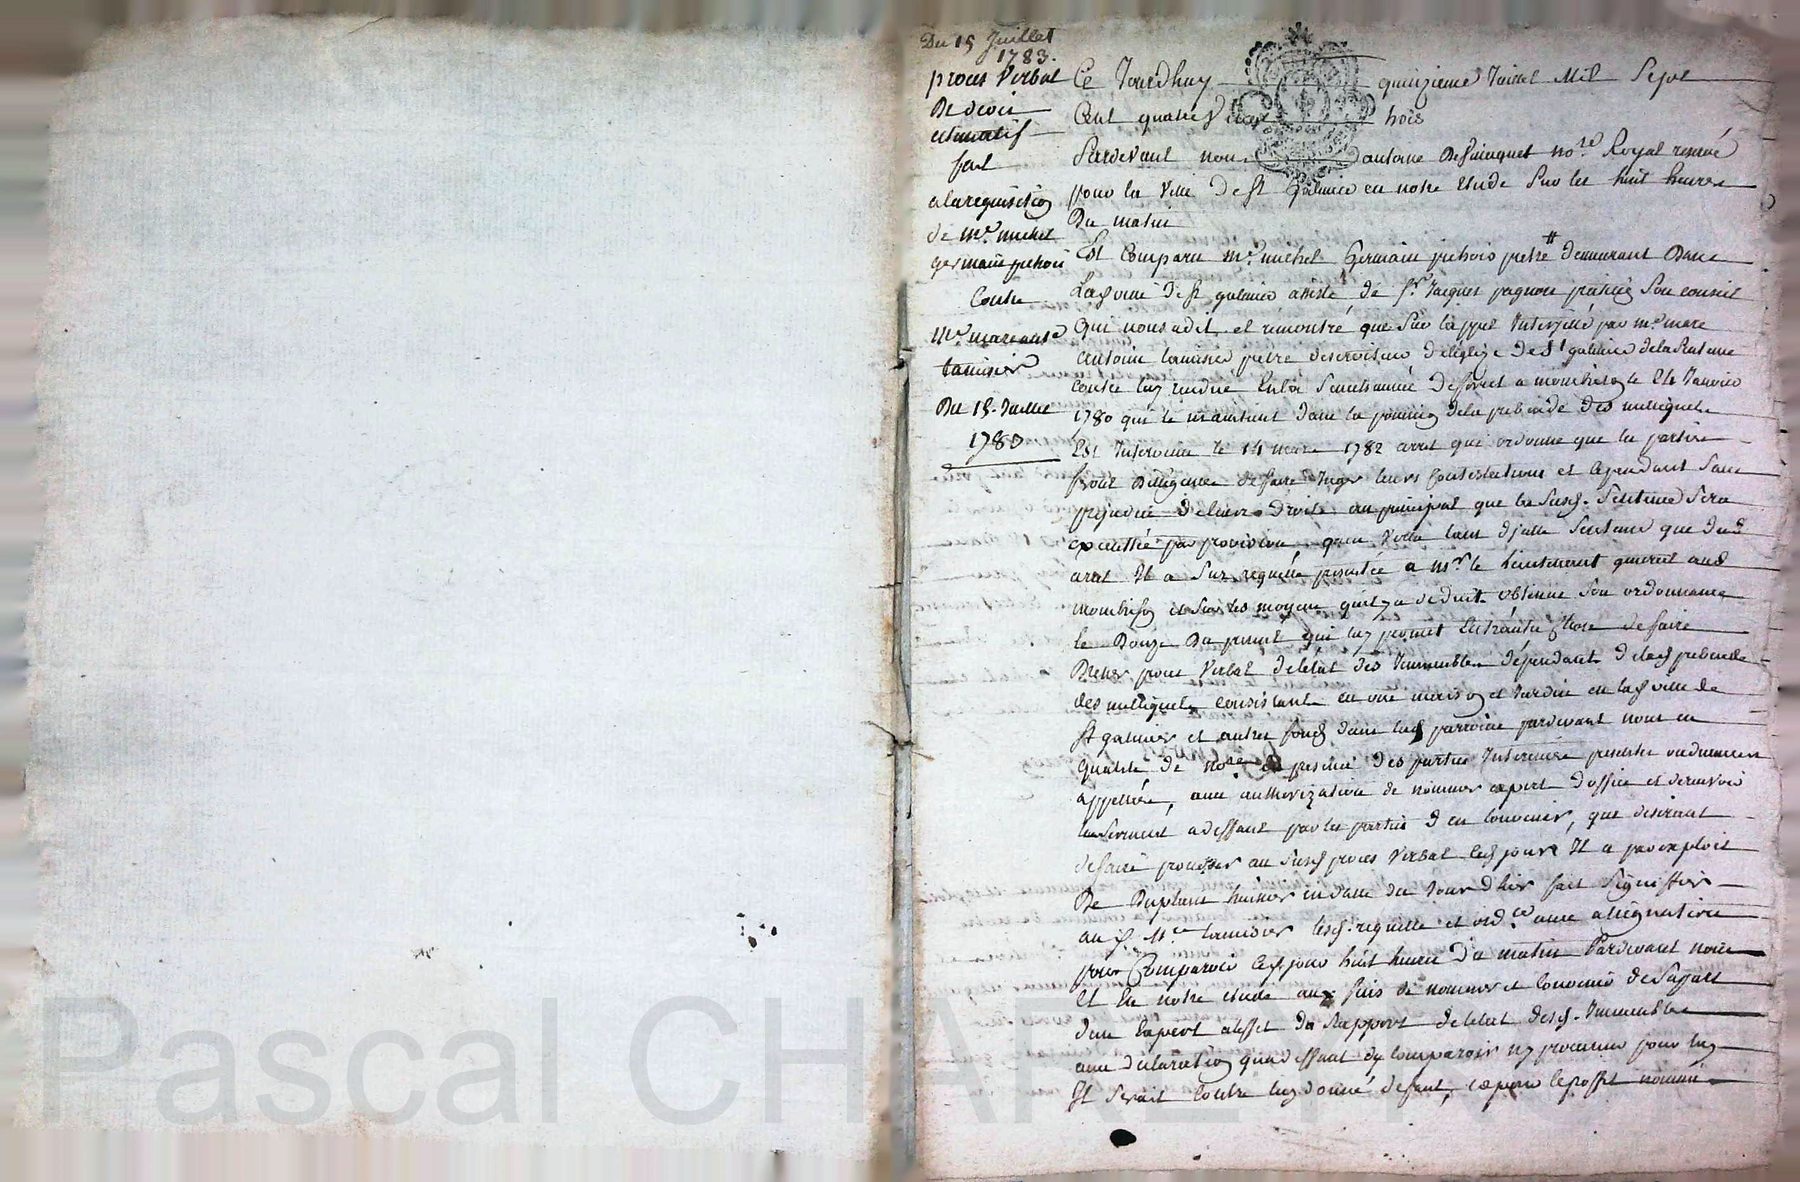 Du 15 Juillet
1783.
proces Verbal
De
estimatif
fait
a la requisition
de Mre michel
germain pichois
Contre
Mre marc ant
tamisier
Du 15 Juillet
1783
Ce Jourdhuy quinzieme Juillet Mil Sept
Cent quatre Vingt trois
Pardevant nous antoine no.re Royal reservé
pour la Ville de St Galmier en notre Etude Sur les huit heures
Du matin
Est Comparu Mre michel Germain pichois pretre # demeurant Dans
Lad ville de St galmier assisté de Sr Jacques pagnon praticien Son conseil
Qui nous a dit et remontré que Sur lappel Interjetté par Mre marc
antoine tamisier pretre de leglize de St galmier de la Sentence
contre luy rendue En la Senechaussée de forest a montbrison le 24 Janvier
1780 qui le maintient dans la possession de la prebende des
Est Intervenu le 14 mars 1782 arrest qui ordonne que les parties
feront Diligence de faire Juger leurs Contestations et Cependant Sans
prejudice de leurs droits au principal que la Susd. Sentence Sera
executtée par provision, quen Vertu tant dicelle Sentence que dud
arrest Il a Sur requette presentée a Mr le Lieutenant general aud
montbrison et Sur les moyens quil y a deduit obtenu Son ordonnance
le Douze Du present qui luy permet Entrautre Chose de faire
Dresser proces Verbal de létat des Immeubles dépendants de lad prebende
des consistants en une maison et Jardin en lad ville de
St galmier et autres fonds dans lad parroisse pardevant nous en
qualité de no.re en presence des parties Interessées presentes ou duement
appellées, avec authorization de nommer expert doffice et de recevoir
le Serment a deffaut par les parties den Convenir, que desirant
de faire proceder au Susd proces Verbal led jour Il a par exploit
De Duplant huissier en date du Jour dhier fait Signiffier
au d. Mre tamisier lesd. requette et ord.ce avec assignation
pour Comparoir Cejourd huit heures du matin Pardevant nous
Et En notre etude aux fins de nommer et Convenir de Sa part
dun Expert a leffet du Rapport de letat desd. Immeubles
avec declaration qua deffaut dy Comparoir ny procureur pour luy
Il Seroit Contre luy donné defaut,